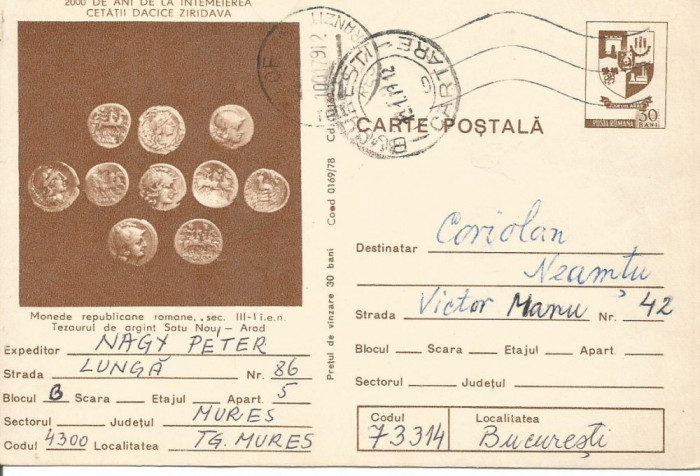 2000 DE ANI DE LA INTEMEIEREA
CETĂȚII DACICE ZIRIDAVA
Monede republicane romane, sec. III-I i.e.n.
Tezaurul de argint Satu Nou, - Arad
Expeditor NAGY PETER
Strada LUNGĂ Nr. 86
Blocul B Scara Etajul Apart. 5
Sectorul Județul MURES
Codul 4300 Localitatea TG. MURES
Prețul de vinzare 30 bani Cod 0169/78
CARTARE
CARTE POȘTALĂ
POSTA ROMANA 30 BANI
Destinatar Coriolan
Neamțu
Strada Victor Manu Nr. 42
Blocul Scara Etajul Apart.
Sectorul Județul
Codul Localitatea
73314 București